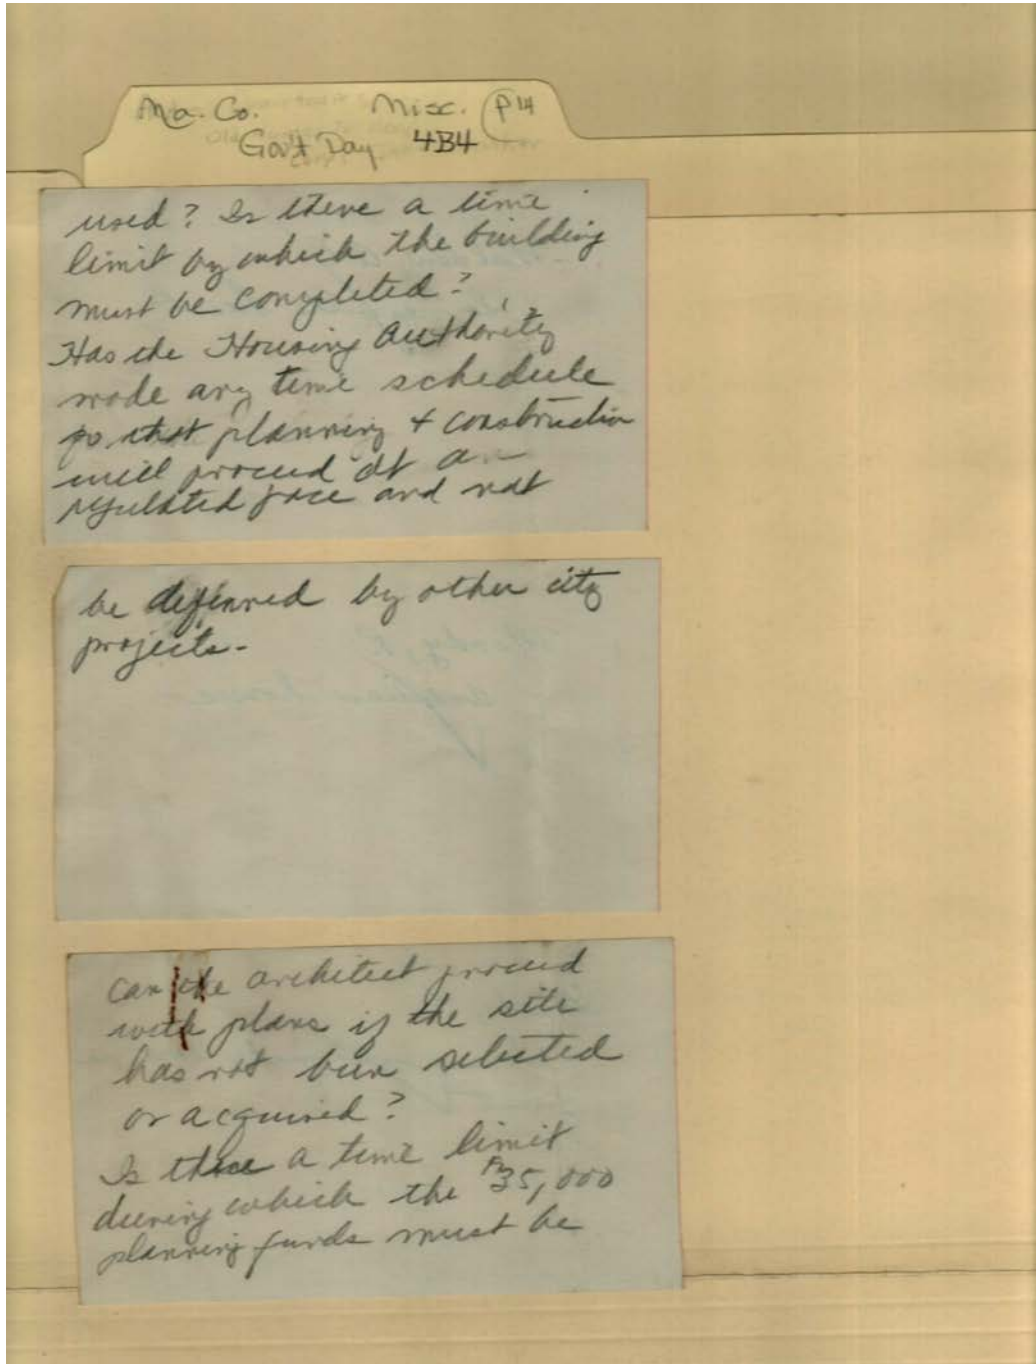 Ma. Co. Misc. P14
Gov't Day 4B4
used? Is there a time
limit by which the building
must be completed?
Has the Housing Authority
made any time schedule
so that planning & construction
will proceed at a
regulated pace and not
be deferred by other city
projects.
can the architect proceed
with plans if the site
has not been selected
or acquired?
Is there a time limit
during which the 35,000
planning funds must be